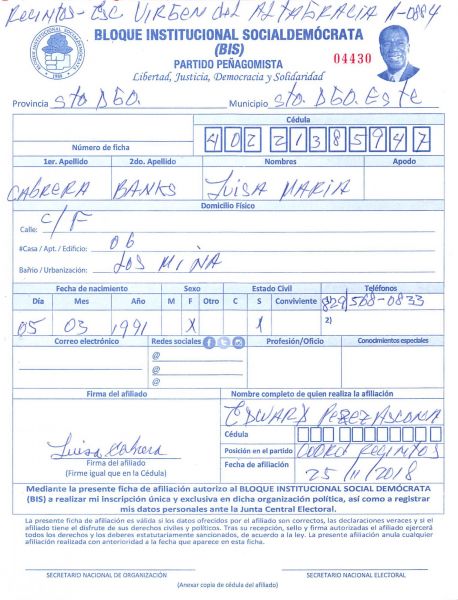 Recintos - Esc Virgen del Altagracia A-0884
BLOQUE INSTITUCIONAL SOCIALDEMÓCRATA
(BIS)
PARTIDO PEÑAGOMISTA
04430
Libertad, Justicia, Democracia y Solidaridad
Provincia Sto Dgo. Municipio Sto. Dgo. Este
Cédula
Número de ficha 402 2138594 7
1er. Apellido 2do. Apellido Nombres Apodo
CABRERA BANKS LUISA MARIA
Domicilio Físico
Calle: C/F
#Casa / Apt. / Edificio: 06
Bañrio / Urbanización: LOS MINA
Fecha de nacimiento Sexo Estado Civil Teléfonos
Día Mes Año M F Otro C S Conviviente 829/568-0833
05 03 1991 X X 2)
Correo electrónico Redes sociales Profesión/Oficio Conocimientos especiales
@
@
@
Firma del afiliado Nombre completo de quien realiza la afiliación
EDWARD PEREZ
Cédula
Luisa Cabrera
Firma del afiliado
(Firme igual que en la Cédula)
Posición en el partido COORD RECINTOS
Fecha de afiliación 25/11/2018
Mediante la presente ficha de afiliación autorizo al BLOQUE INSTITUCIONAL SOCIAL DEMÓCRATA
(BIS) a realizar mi inscripción única y exclusiva en dicha organización política, así como a registrar
mis datos personales ante la Junta Central Electoral.
La presente ficha de afiliación es válida si los datos ofrecidos por el afiliado son correctos, las declaraciones veraces y si el
afiliado tiene el disfrute de sus derechos civiles y políticos. Tras su recepción, sello y firma autorizadas el afiliado ejercerá
todos los derechos y los deberes estatutariamente sancionados, de acuerdo a la ley. La presente afiliación anula cualquier
afiliación realizada con anterioridad a la fecha que aparece en esta ficha.
SECRETARIO NACIONAL DE ORGANIZACIÓN SECRETARIO NACIONAL ELECTORAL
(Anexar copia de cédula del afiliado)